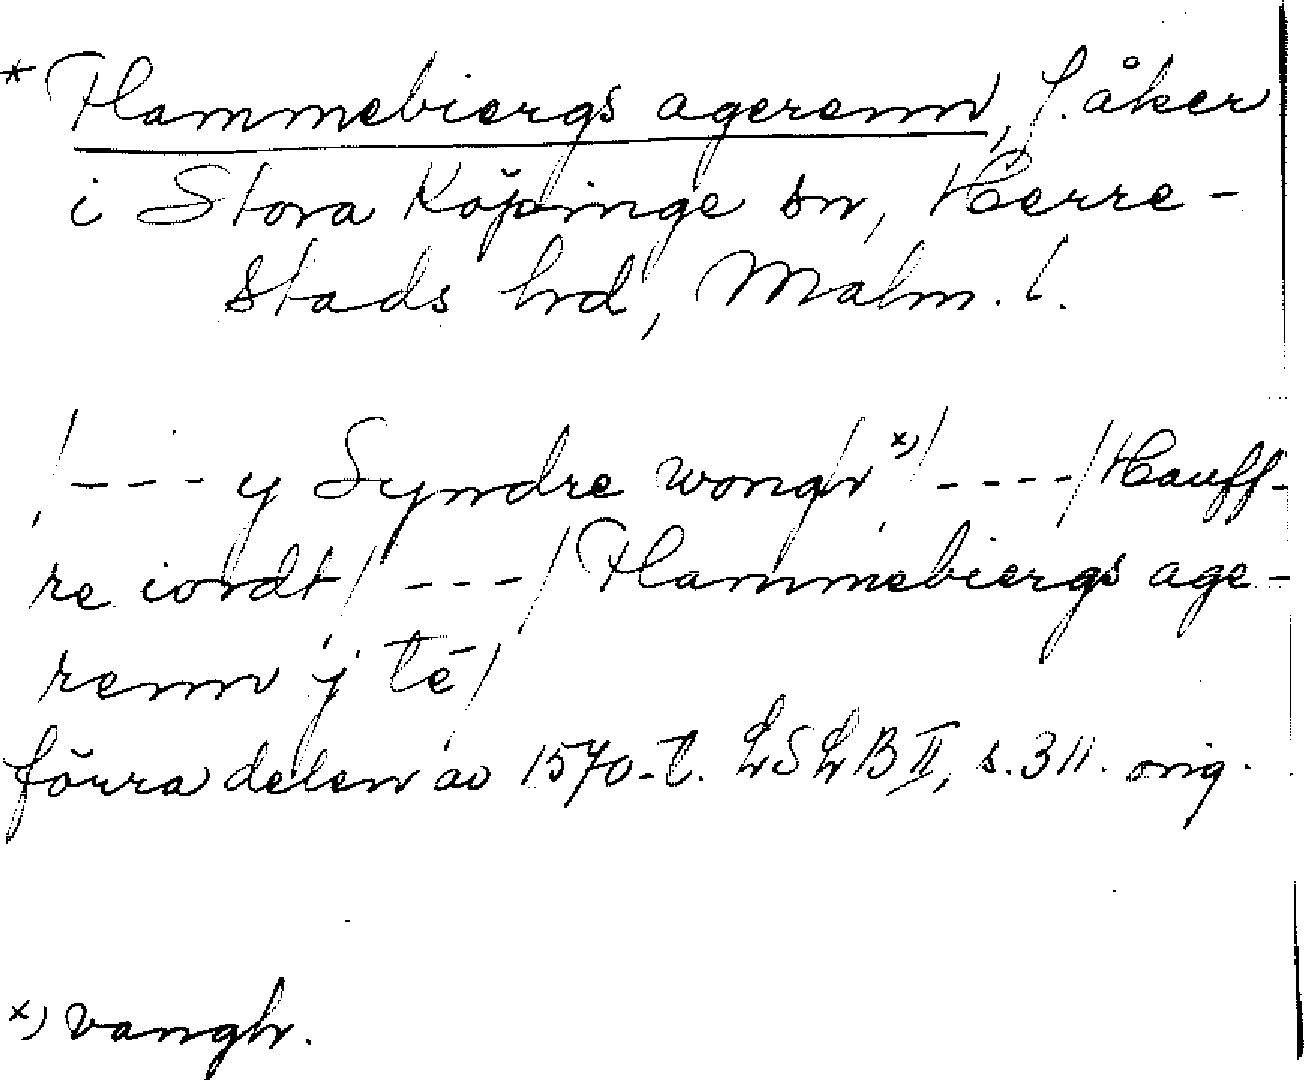 * Hammebiergs agerenn, f. åker
i Stora Köpinge sn, Herre-
stads hd, Malm. l.
/---y Syndre wongh x)/----/Hauff-
re iordt/---/Hammebiergs age-
renn y té/
förra delen av 1570-t. LSLB II, s. 311. orig.
x) vangh.